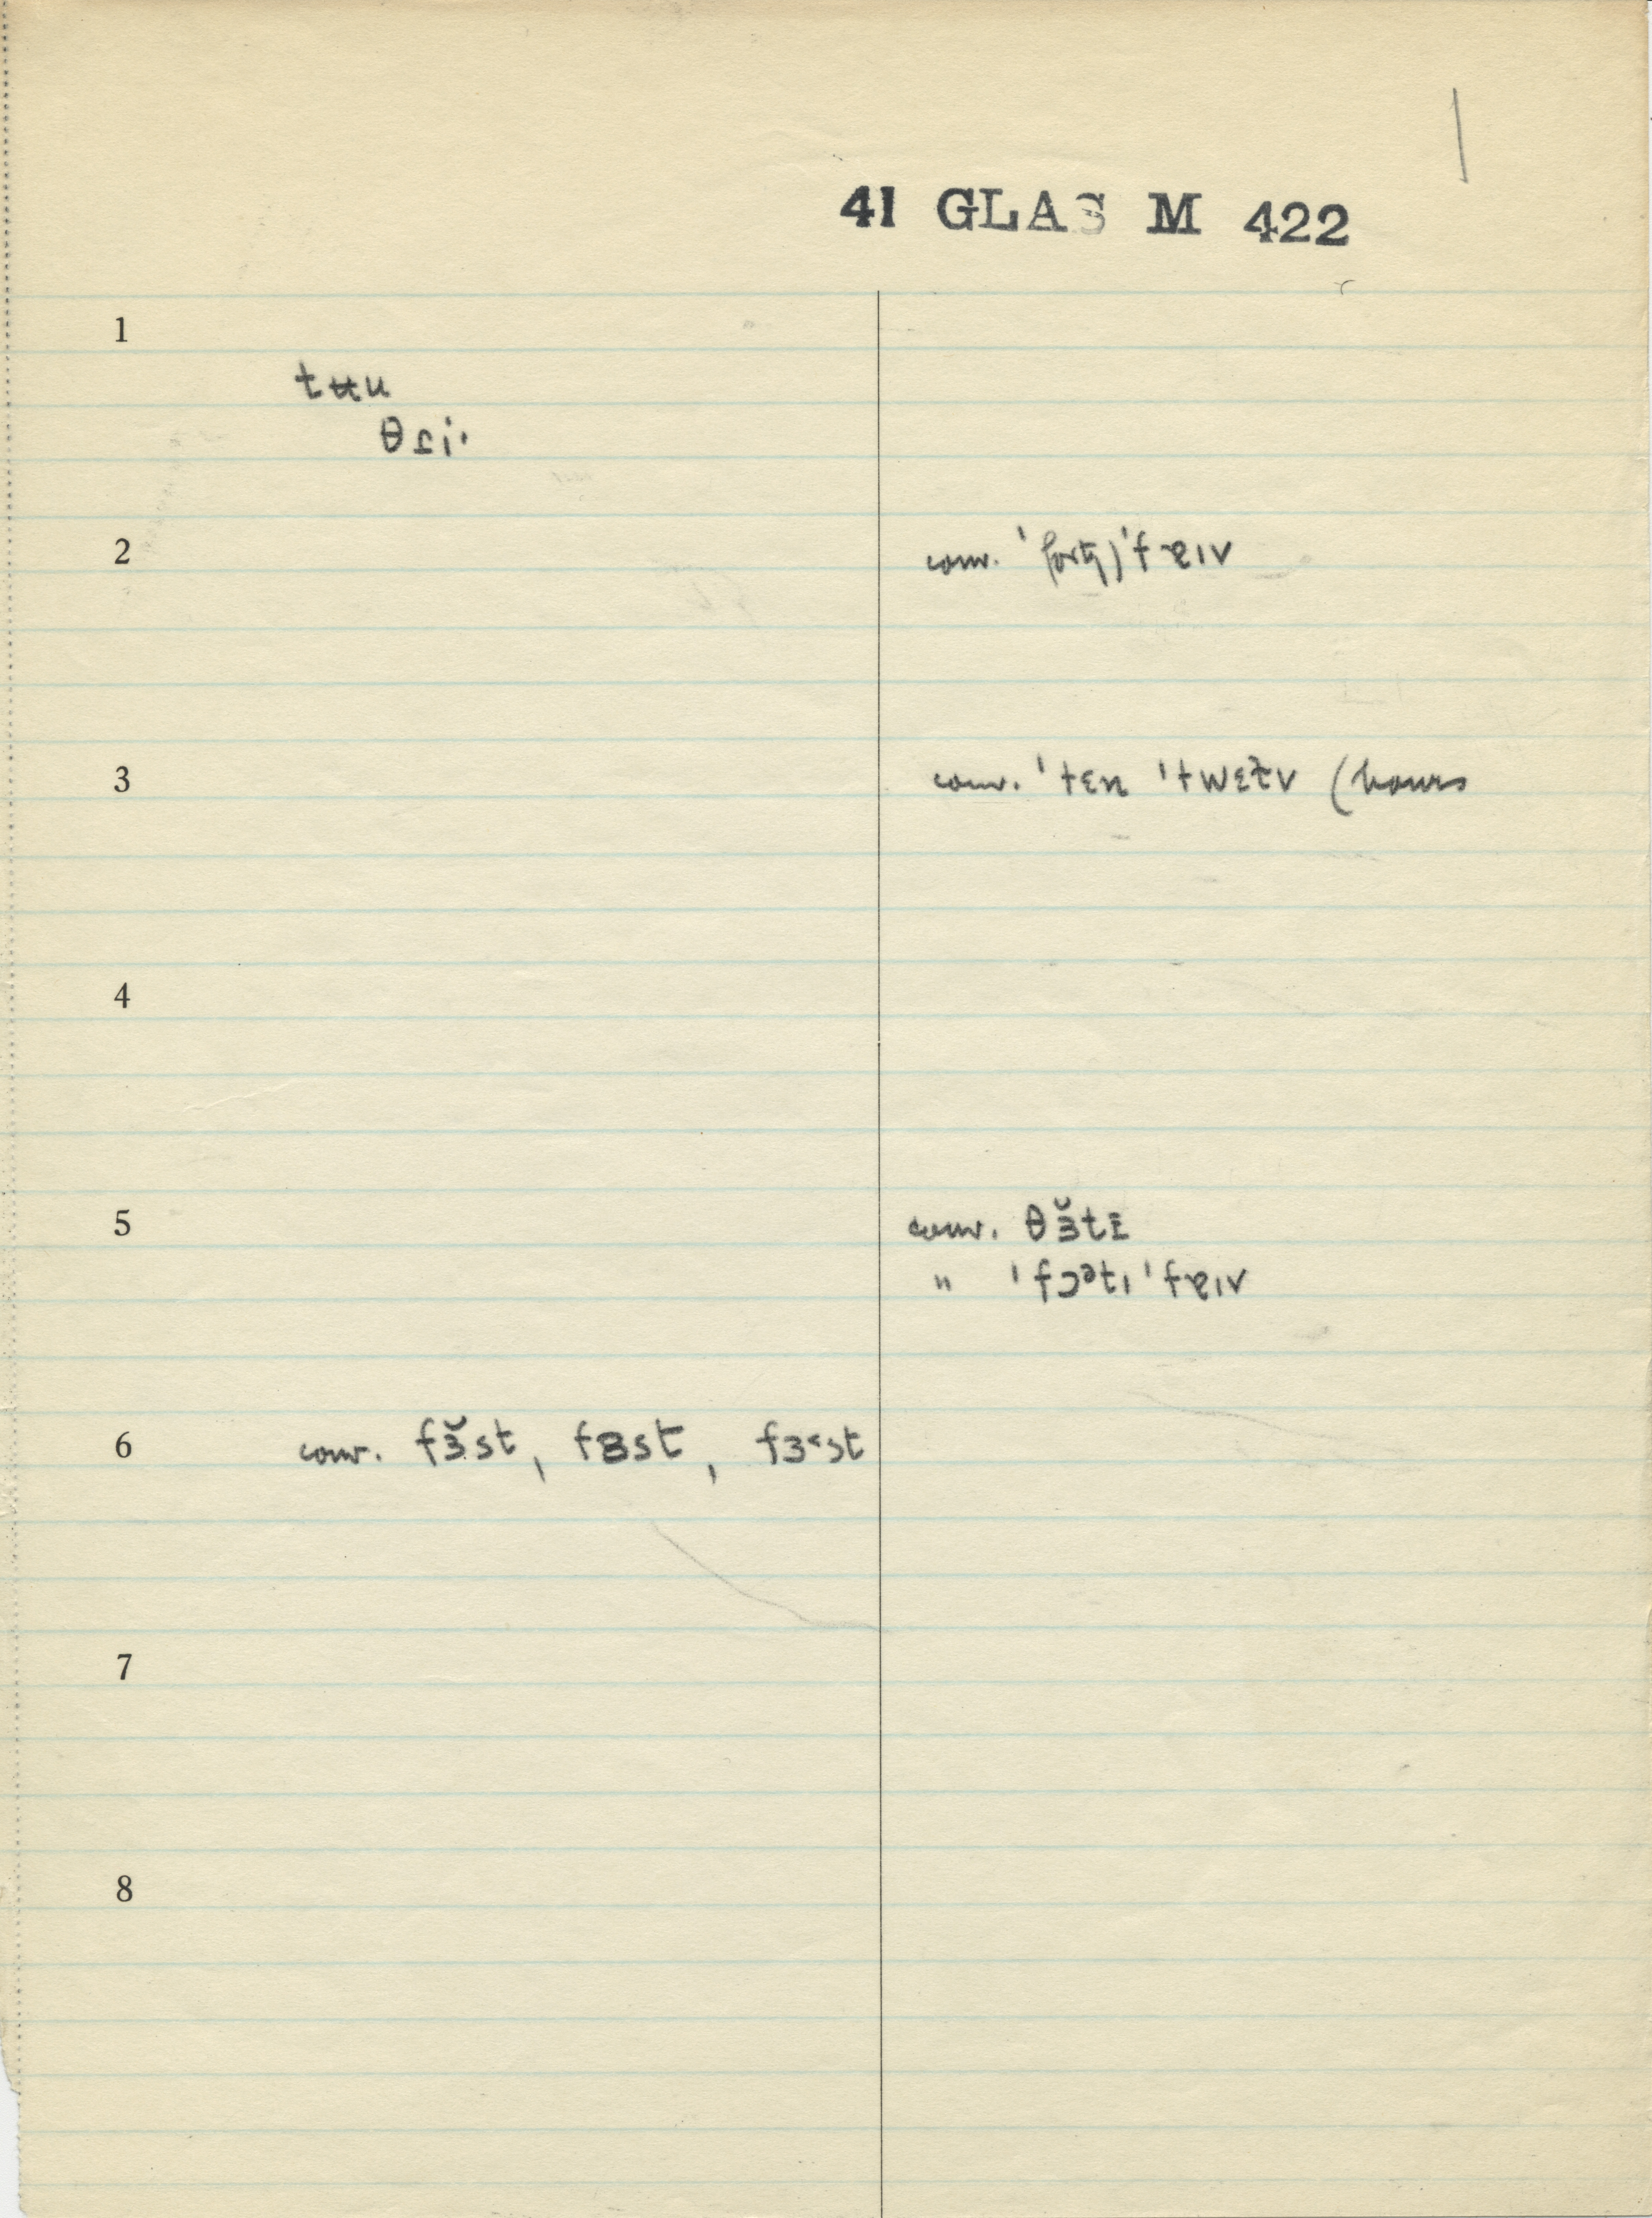 41 GLAS M 422
1
tʉu
θɾi·
2 conv. 'forty)'fɐɪv
3 conv. 'tɛn 'twɛɫv (hours
4
5 conv. θɜ̆tɪ
" 'fɔᵊtɪ 'fɐɪv
6 conv. fɜ̆st, fɞst, fɜ˂st
7
8